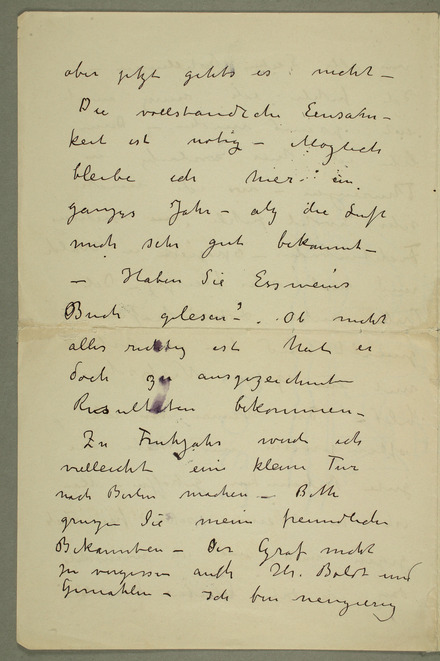 aber jetzt gehts es nicht –
Die vollstandiche Einsahm-
keit ist notig – Moglich
bleibe ich hier ein
ganzes Jahr – als die Luft
mich sehr gut bekommt –
– Haben Sie Essweins
Buch gelesen? – Ob nicht
alles richtig ist hat er
doch zu ausgezeichnete
Resultaten bekommen –
Zu Fruhjahr werde ich
vielleicht eine kleine Tur
nach Berlin machen – Bitte
gruzen Sie meine freundliche
Bekannten – Der Graf nicht
zu vergessen auch Hr. Boldt und
Gemahlin – Ich bin neugierig